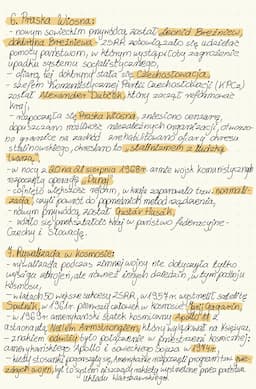 6. Praska Wiosna:
- nowym sowieckim przywódcą został Leonid Breżniew,
doktryna Breżniewa - ZSRR zobowiązało się udzielać
pomocy państwom, w którym wystąpiłoby zagrożenie
upadku systemu socjalistycznego,
- ofiarą tej doktryny stała się Czechosłowacja,
- szefem Komunistycznej Partii Czechosłowacji (KPCz)
został Alexander Dubček, który zaczął reformować
kraj,
- rozpoczęła się Praska Wiosna, zniesiono cenzurę,
dopuszczano możliwość niezależnych organizacji,
po granice na zachód zrehabilitowano ofiary okresu
stalinowskiego, określano to "stalinizmem z ludzką
twarzą",
- w nocy z 20 na 21 sierpnia 1968r. armie wojsk komunistycznych
rozpoczęła operację "Dunaj"
- cofnięto większość reform, w kraju zapanowała tzw. normali-
zacja, czyli powrót do poprzednich metod rządzenia,
- nowym przywódcą został Gustáv Husák,
- udało się przekształcić kraj w państwo federacyjne -
Czechy i Słowację.
7. Rywalizacja w kosmosie:
- rywalizacja podczas zimnej wojny nie dotyczyła tylko
wyścigu zbrojeń, ale również innych dziedzin, w tym podboju
kosmosu,
- w latach 50 większe sukcesy ZSRR, w 1957r wystrzelił satelitę
Sputnik, w 1961r. pierwszy człowiek w kosmosie Jurij Gagarin,
- w 1969r amerykański statek kosmiczny Apollo 11 z
astronautą Neilem Armstrongiem, który wylądował na Księżycu,
- znakiem odwilży było połączenie w przestrzeni kosmicznej:
amerykańskiego Apollo i sowieckiego Sojuza w 1974r.
- kiedy stosunki pogorszyły się, Amerykanie rozpoczęli program tzw. gwie-
zdnych wojen, był to system niszczący rakiety wystrzelone przez państwa
Układu Warszawskiego.